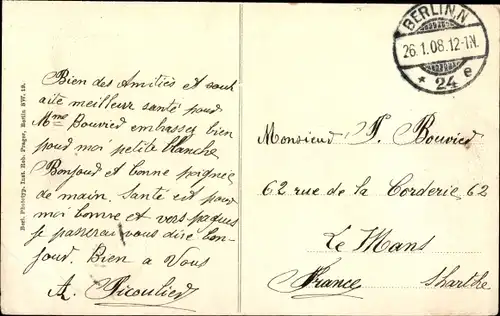 Bien des Amitiés et souh
aite meilleur santé pour
Mme Bouvier embrasser bien
pour moi petite blanche
Bonjour et bonne poignée
de main. Santé est pour
moi bonne et vers paques
je passerai vous dire bon-
jour. Bien a Vous
A. Picoulier
Berl. Phototyp. Inst. Rob. Prager, Berlin SW. 19.
BERLIN.N
26.1.08.12-1N.
* 24 e
Monsieur P. Bouvier
62 rue de la Corderie 62
Le Mans
France Sharthe